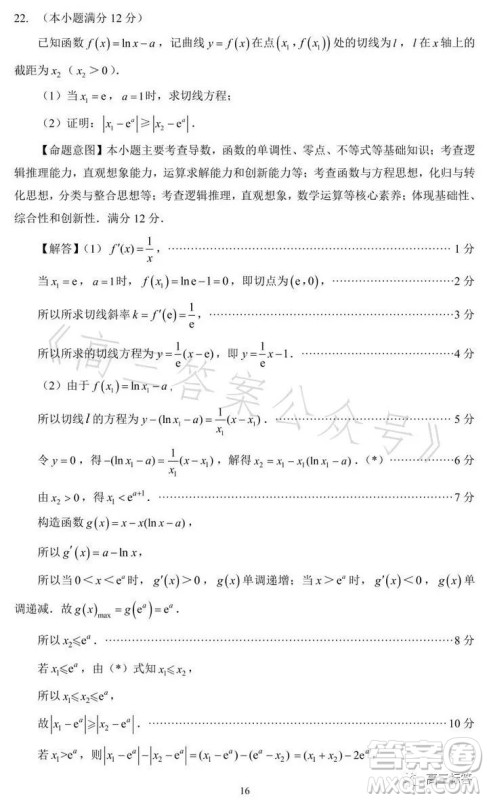 22. （本小题满分 12 分）
已知函数 f(x)=ln x−a，记曲线 y=f(x)在点(x₁，f(x₁))处的切线为 l，l 在 x 轴上的
截距为 x₂（x₂＞0）．
（1）当 x₁=e，a=1时，求切线方程；
（2）证明：|x₁−eᵃ|⩾|x₂−eᵃ|．
【命题意图】本小题主要考查导数，函数的单调性、零点、不等式等基础知识；考查逻
辑推理能力，直观想象能力，运算求解能力和创新能力等；考查函数与方程思想，化归与转
化思想，分类与整合思想等；考查逻辑推理，直观想象，数学运算等核心素养；体现基础性、
综合性和创新性．满分 12 分．
【解答】（1）f′(x)=1/x，…………1 分
当 x₁=e，a=1时，f(x₁)=ln e−1=0，即切点为(e,0)，…………2 分
所以所求切线斜率 k=f′(e)=1/e，…………3 分
所以所求的切线方程为 y=1/e(x−e)，即 y=1/e x−1．…………4 分
（2）由于 f(x₁)=ln x₁−a，
所以切线 l 的方程为 y−(ln x₁−a)=1/x₁(x−x₁)．…………5 分
令 y=0，得−(ln x₁−a)=1/x₁(x−x₁)，解得 x₂=x₁−x₁(ln x₁−a)．(*)…………6 分
由 x₂＞0，得 x₁＜eᵃ⁺¹．…………7 分
构造函数 g(x)=x−x(ln x−a)，
所以 g′(x)=a−ln x，
所以当 0＜x＜eᵃ 时，g′(x)＞0，g(x)单调递增；当 x＞eᵃ 时，g′(x)＜0，g(x)单
调递减．故 g(x)max=g(eᵃ)=eᵃ．
所以 x₂⩽eᵃ．…………8 分
若 x₁⩽eᵃ，由（*）式知 x₁⩽x₂，
所以 x₁⩽x₂⩽eᵃ，
故|x₁−eᵃ|⩾|x₂−eᵃ|．…………10 分
若 x₁>eᵃ，则|x₁−eᵃ|−|x₂−eᵃ|=(x₁−eᵃ)−(eᵃ−x₂)=(x₁+x₂)−2eᵃ
16
《高三答案公众号》